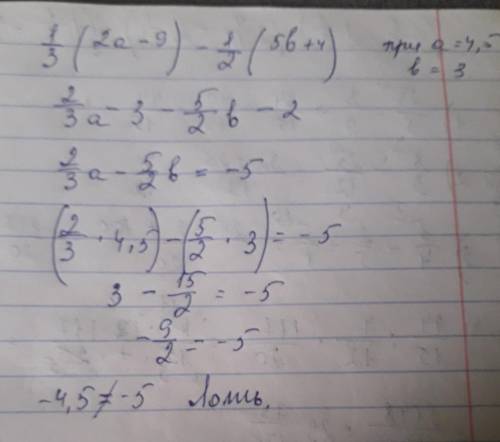 1/3 (2a - 9) - 1/2 (5b + 4) при a = 4,5
b = 3
2/3 a - 3 - 5/2 b - 2
2/3 a - 5/2 b = -5
(2/3 · 4,5) - (5/2 · 3) = -5
3 - 15/2 = -5
-9/2 = -5
-4,5 ≠ -5 Ложь.